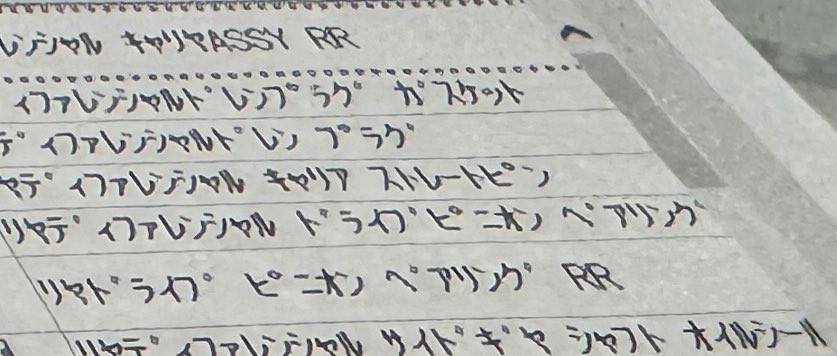 レンシャル キャリヤASSY RR
イファレンシャルドレンプラグ ガスケット
デイファレンシャルドレン プラグ
ヤデイファレンシャル キャリア ストレートピン
リヤデイファレンシャル ドライブピニオン ベアリング
リヤドライブ ピニオン ベアリング RR
リヤデイファレンシャル サイドギヤ シャフト オイルシール